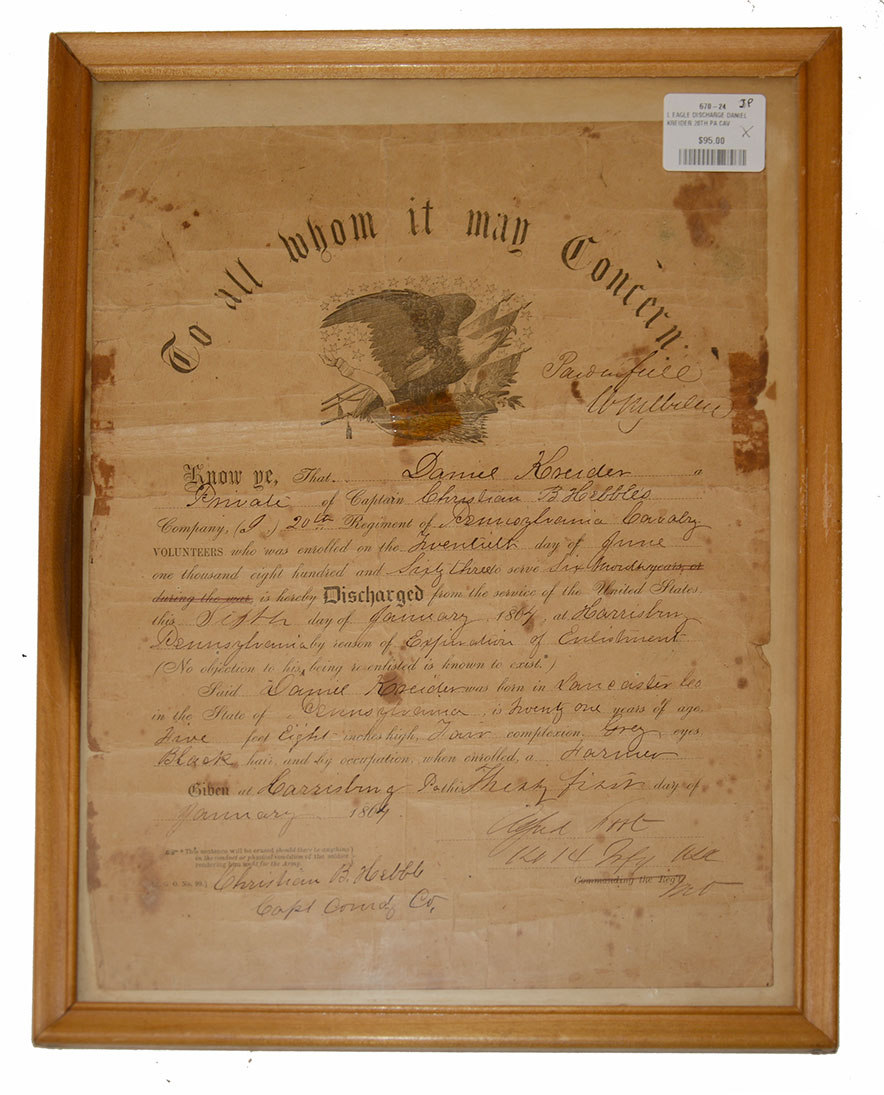 678-24 JP
L EAGLE DISCHARGE DANIEL
KREIDER 20TH PA CAV
X
$95.00
To all whom it may Concern.
Paid in full
Know ye, That Daniel Kreider a
Private of Captain Christian B. Hebbles
Company, (I.) 20th Regiment of Pennsylvania Cavalry
VOLUNTEERS who was enrolled on the Twentieth day of June
one thousand eight hundred and Sixty three to serve Six months years, or
during the war, is hereby Discharged from the service of the United States,
this day of January 1864, at Harrisburg
Pennsylvania by reason of Expiration of Enlistment
(No objection to his being re-enlisted is known to exist.*)
Said Daniel Kreider was born in Lancaster Co
in the State of Pennsylvania, is Twenty one years of age,
Five feet Eight inches high, Fair complexion, Grey eyes,
Black hair, and by occupation, when enrolled, a Farmer
Given at Harrisburg Pa this Thirty first day of
January 1864.
Alfred Foot
14 Infy USA
Commanding the Reg't
* This sentence will be erased should there be anything
in the conduct or physical condition of the soldier
rendering him unfit for the Army.
Christian B. Hebble
Capt Comdg Co.